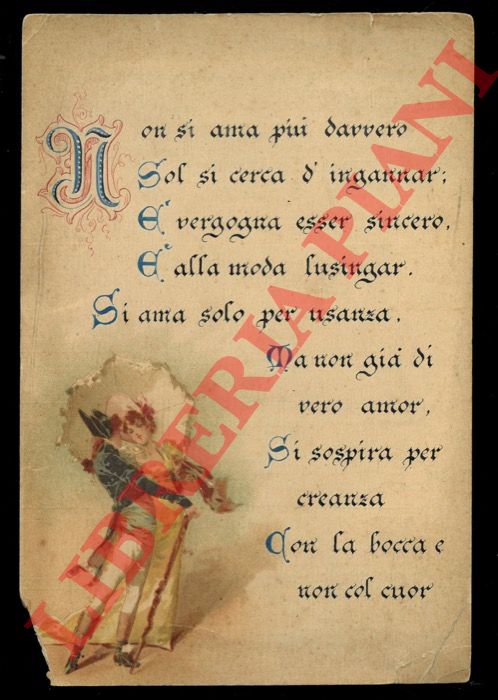 Non si ama più davvero
Sol si cerca d' ingannar;
E' vergogna esser sincero,
E' alla moda lusingar.
Si ama solo per usanza,
Ma non già di
vero amor,
Si sospira per
creanza
Con la bocca e
non col cuor
LIBRERIA PIANI